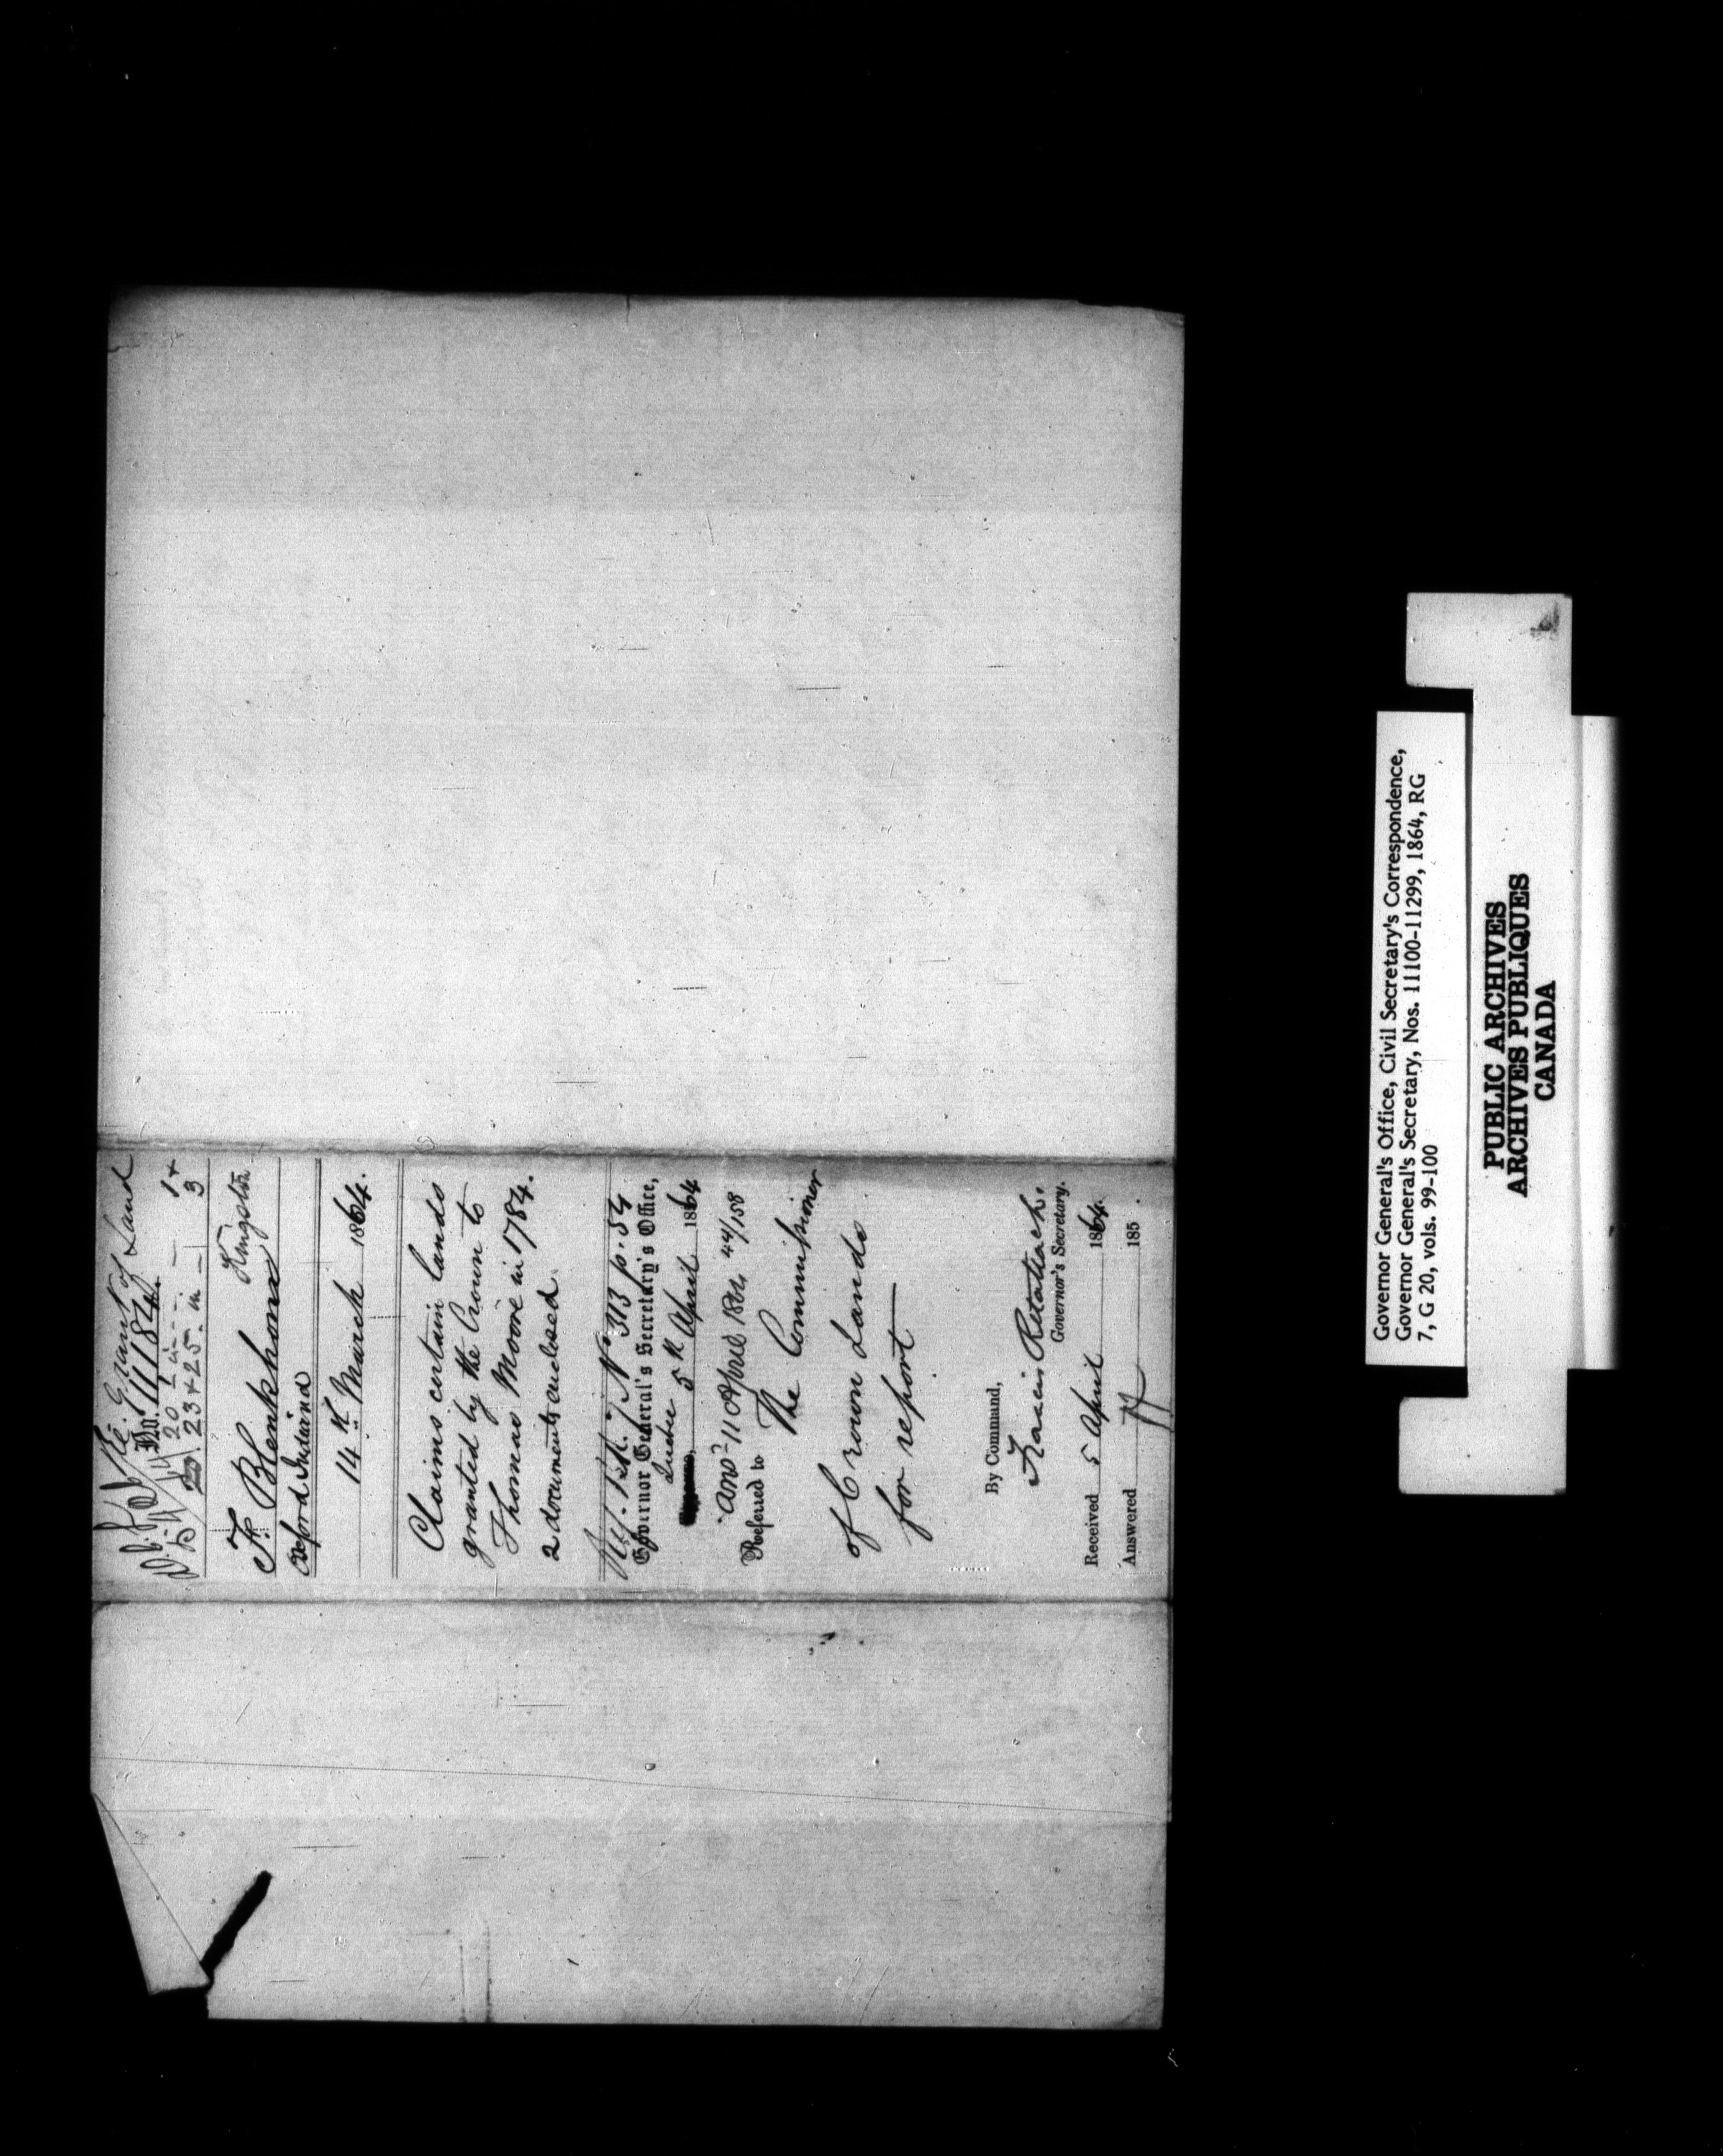 Grant of Land
No. 11184.
20 in 1 +
20. 23 + 25. in 3
Fr. Blenkhorn Kingston
Oxford Intd
14th March 1864.
Claims certain lands
granted by the Crown to
Thomas Moore in 1784.
2 documents enclosed.
No 313 p. 54
Governor General's Secretary's Office,
Quebec 5th April 1864
Ansd 11 April 1864 44/158
Referred to The Commissioner
of Crown Lands
for report
By Command,
Francis Retallack.
Governor's Secretary.
Received 5 April 1864.
Answered 185 .
Governor General's Office, Civil Secretary's Correspondence,
Governor General's Secretary, Nos. 11100-11299, 1864, RG
7, G 20, vols. 99-100
PUBLIC ARCHIVES
ARCHIVES PUBLIQUES
CANADA